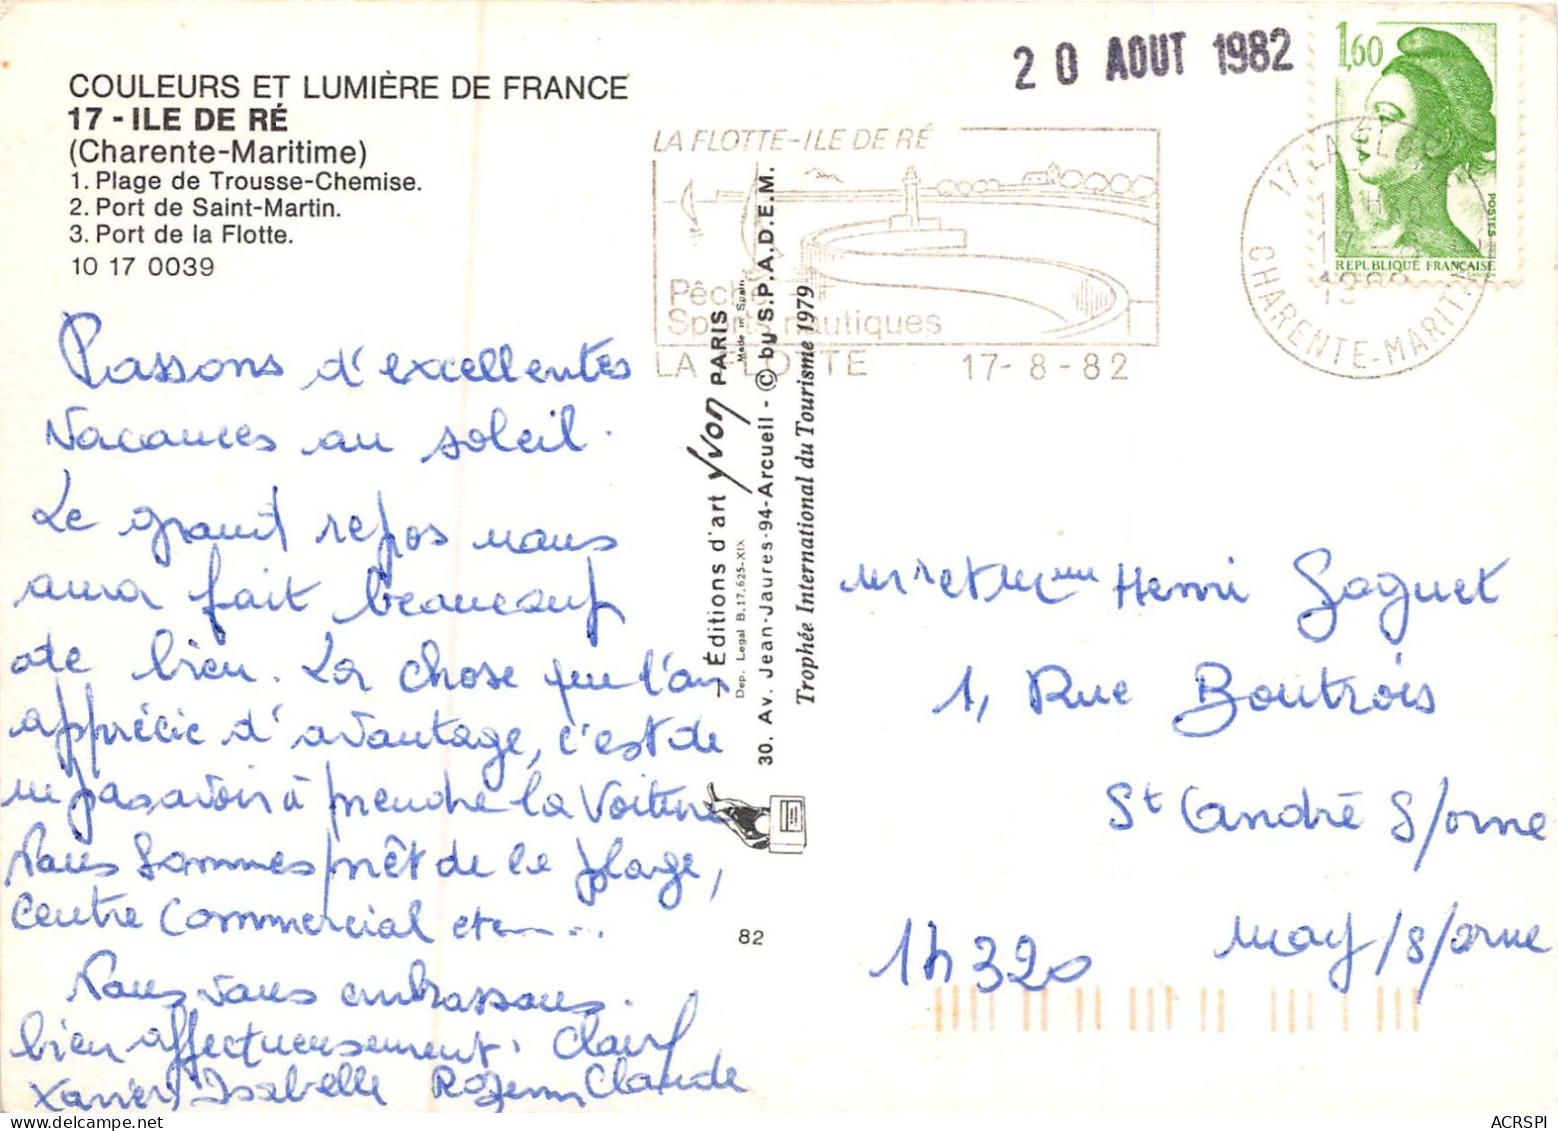 COULEURS ET LUMIÈRE DE FRANCE
17 - ILE DE RÉ
(Charente-Maritime)
1. Plage de Trousse-Chemise.
2. Port de Saint-Martin.
3. Port de la Flotte.
10 17 0039
20 AOUT 1982
1,60
POSTES
REPUBLIQUE FRANÇAISE
LA FLOTTE-ILE DE RÉ
Pêche
Sports nautiques
LA FLOTTE 17-8-82
17 LA FLOTTE
CHARENTE-MARITIME
Passons d'excellentes
vacances au soleil.
Le grand repos nous
aura fait beaucoup
de bien. La chose que l'on
apprécie d'avantage, c'est de
ne pas avoir à prendre la voiture
Nous sommes prêt de la plage,
Centre Commercial etc...
Nous vous embrassons
bien affectueusement. Claire
Xavier Isabelle Claude
Editions d'art yvon PARIS
Made in Spain
Dep. Legal B. 17.625-XIX
30. Av. Jean-Jaures-94-Arcueil - © by S.P.A.D.E.M.
Trophée International du Tourisme 1979
82
Mr et Mme Henri Gaguet
1, Rue Boutrois
St André S/orne
May/s/orne
14320
ACRSPI